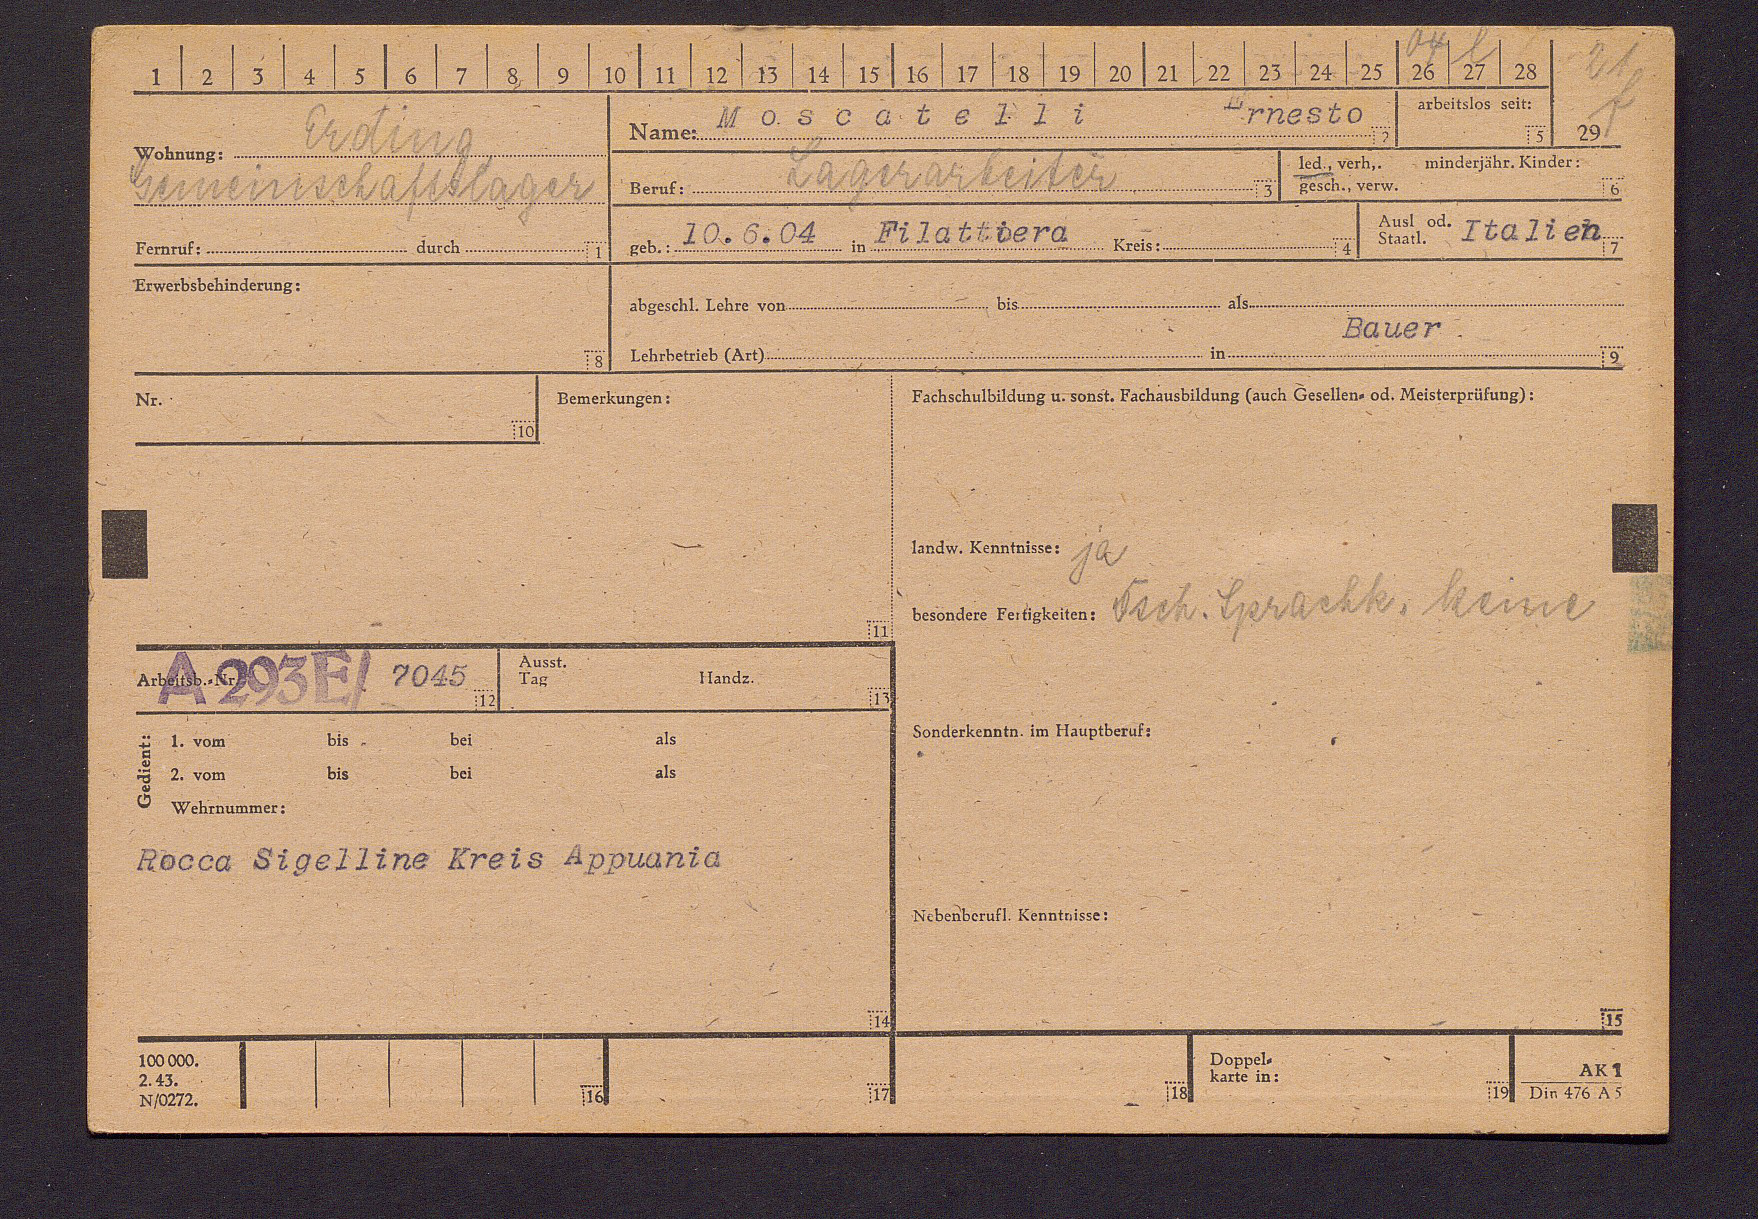 1 2 3 4 5 6 7 8 9 10 11 12 13 14 15 16 17 18 19 20 21 22 23 24 25 26 27 28
04 21
29
Wohnung: Erding
Gemeinschaftslager
Fernruf: durch 1
Name: Moscatelli Ernesto 2
arbeitslos seit: 5
Beruf: Lagerarbeiter 3
led., verh., minderjähr. Kinder:
gesch., verw. 6
geb.: 10.6.04 in Filattiera Kreis: 4
Ausl od.
Staatl. Italien 7
Erwerbsbehinderung:
8
abgeschl. Lehre von bis als
Bauer
Lehrbetrieb (Art) in 9
Nr.
10
Bemerkungen:
11
Fachschulbildung u. sonst. Fachausbildung (auch Gesellen- od. Meisterprüfung):
landw. Kenntnisse: ja
besondere Fertigkeiten: Dsch. Sprachk. keine
Arbeitsb.-Nr. A 293E/ 7045 12
Ausst.
Tag Handz. 13
Gedient:
1. vom bis bei als
2. vom bis bei als
Wehrnummer:
Rocca Sigelline Kreis Appuania
14
Sonderkenntn. im Hauptberuf:
Nebenberufl. Kenntnisse:
15
100 000.
2. 43.
N/0272.
16
17
18
Doppel-
karte in:
19
AK 1
Din 476 A 5